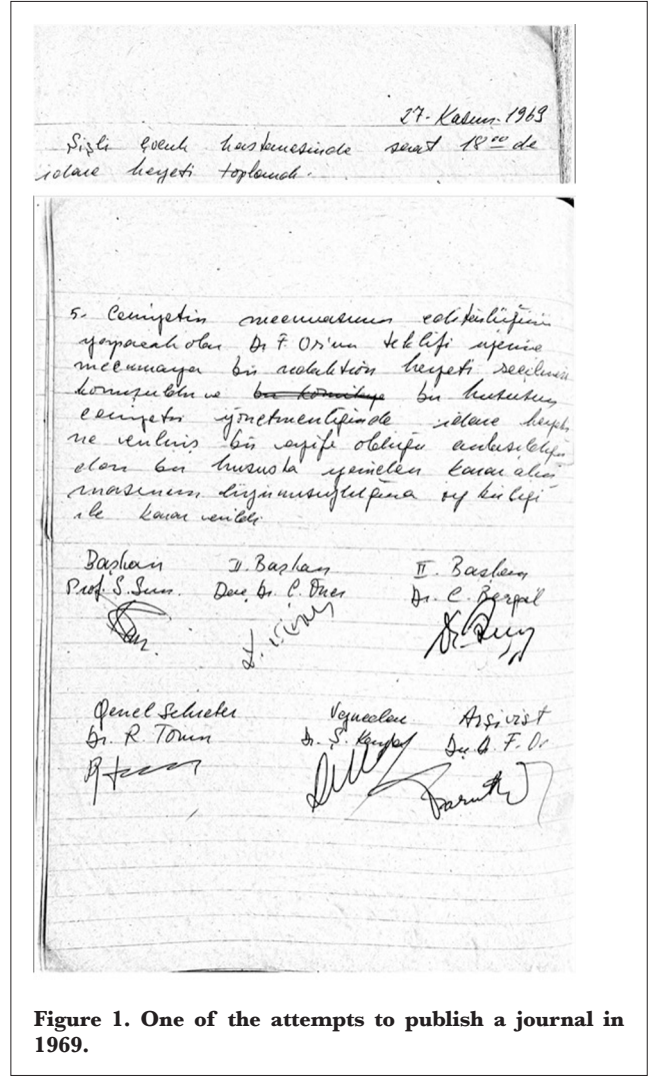 27-Kasım-1969
Şişli çocuk hastanesinde saat 18⁰⁰ de
idare heyeti toplandı.
5- Cemiyetin mecmuasının editörlüğünü
yapacak olan Dr F. Or'un teklifi üzerine
mecmuaya bir redaktion heyeti seçilmesi
konuşuldu ve bu hususun
cemiyetin yönetmenliğinde idare heyeti
ne verilmiş bir vazife olduğu anlaşıldığı
dan bu hususta yeniden karar alın
masının lüzumsuzluğuna oy birliği
ile karar verildi.
Başkan II. Başkan II. Başkan
Prof. S. Doç. Dr. C. Öner Dr. C. Bergül
Genel Sekreter Veznedar Arşivist
Dr. R. Tonin Dr. Ş. Doç. Dr. F. Or
Figure 1. One of the attempts to publish a journal in
1969.